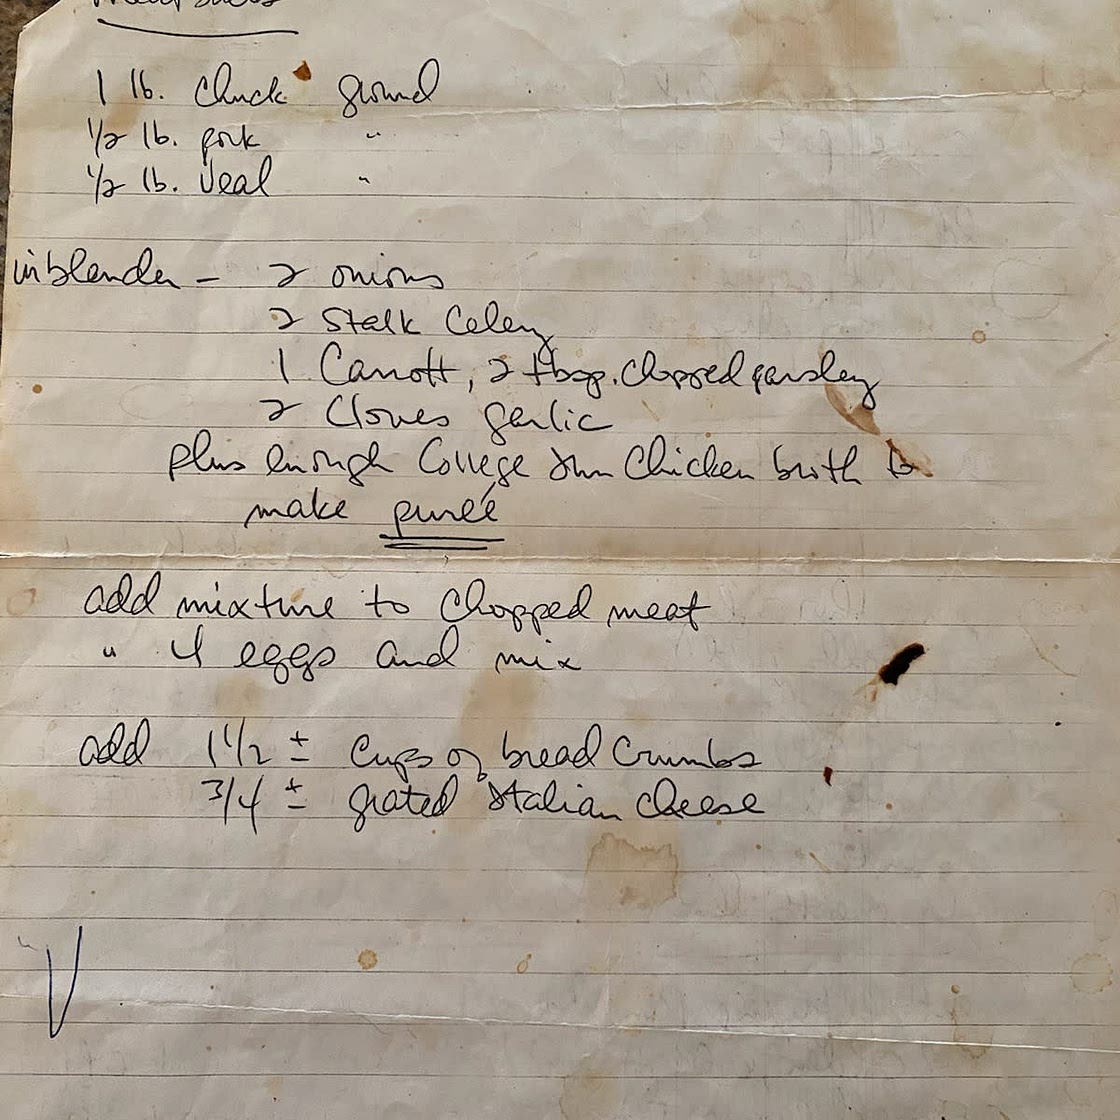 Meatballs
1 lb. Chuck ground
1/2 lb. pork "
1/2 lb. Veal "
in blender - 2 onions
2 Stalk Celery
1 Carrott, 2 tbsp. Chopped parsley
2 Cloves garlic
plus enough College Inn Chicken broth to
make pureé
add mixture to Chopped meat
" 4 eggs and mix
add 1 1/2 ± Cups of bread Crumbs
3/4 ± grated Italian cheese